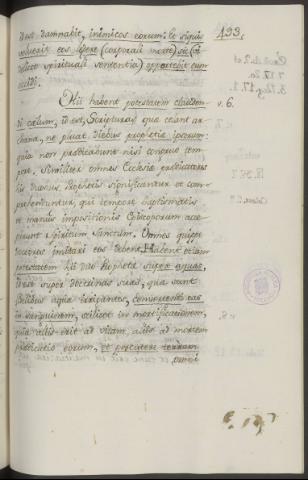 133.
id est damnabit, inimicos eorum: et siquis
voluerit eos lædere (corporali morte) sic (id
est spirituali sententia) oportebit eum
occidi.
Hi habent potestatem claudendi
cælum, id est, Scripturas, quæ celant ar-
cana, ne pluat diebus prophetiæ ipsorum:
quia non prædicabunt nisi congruo tem-
pore. Similiter omnes Ecclesiæ prædicatores
his duobus significantur et com-
prehenduntur, qui tempore baptismatis
et manus impositionis Episcoporum acce-
perunt Spiritum Sanctum. Omnes quippe
imitari eos debent. Habent etiam
potestatem hi duo Prophetæ super aquas,
id est super doctrinas suas, quæ sunt
fidelibus aquæ irrigantes, convertendi eas
in sanguinem, scilicet in mortificationem,
quia aliis erit ad vitam, aliis ad mortem
prædicatio eorum, et percutere terram
omni
v. 6.
v. 8.